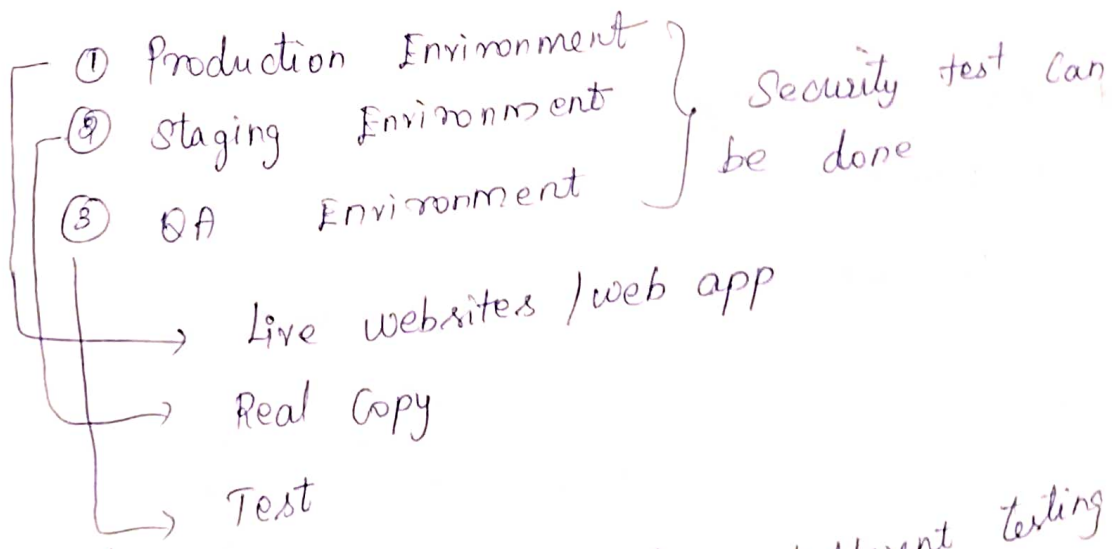 ① Production Environment
② Staging Environment
③ QA Environment
Security test can
be done
Live websites / web app
Real Copy
Test
testing